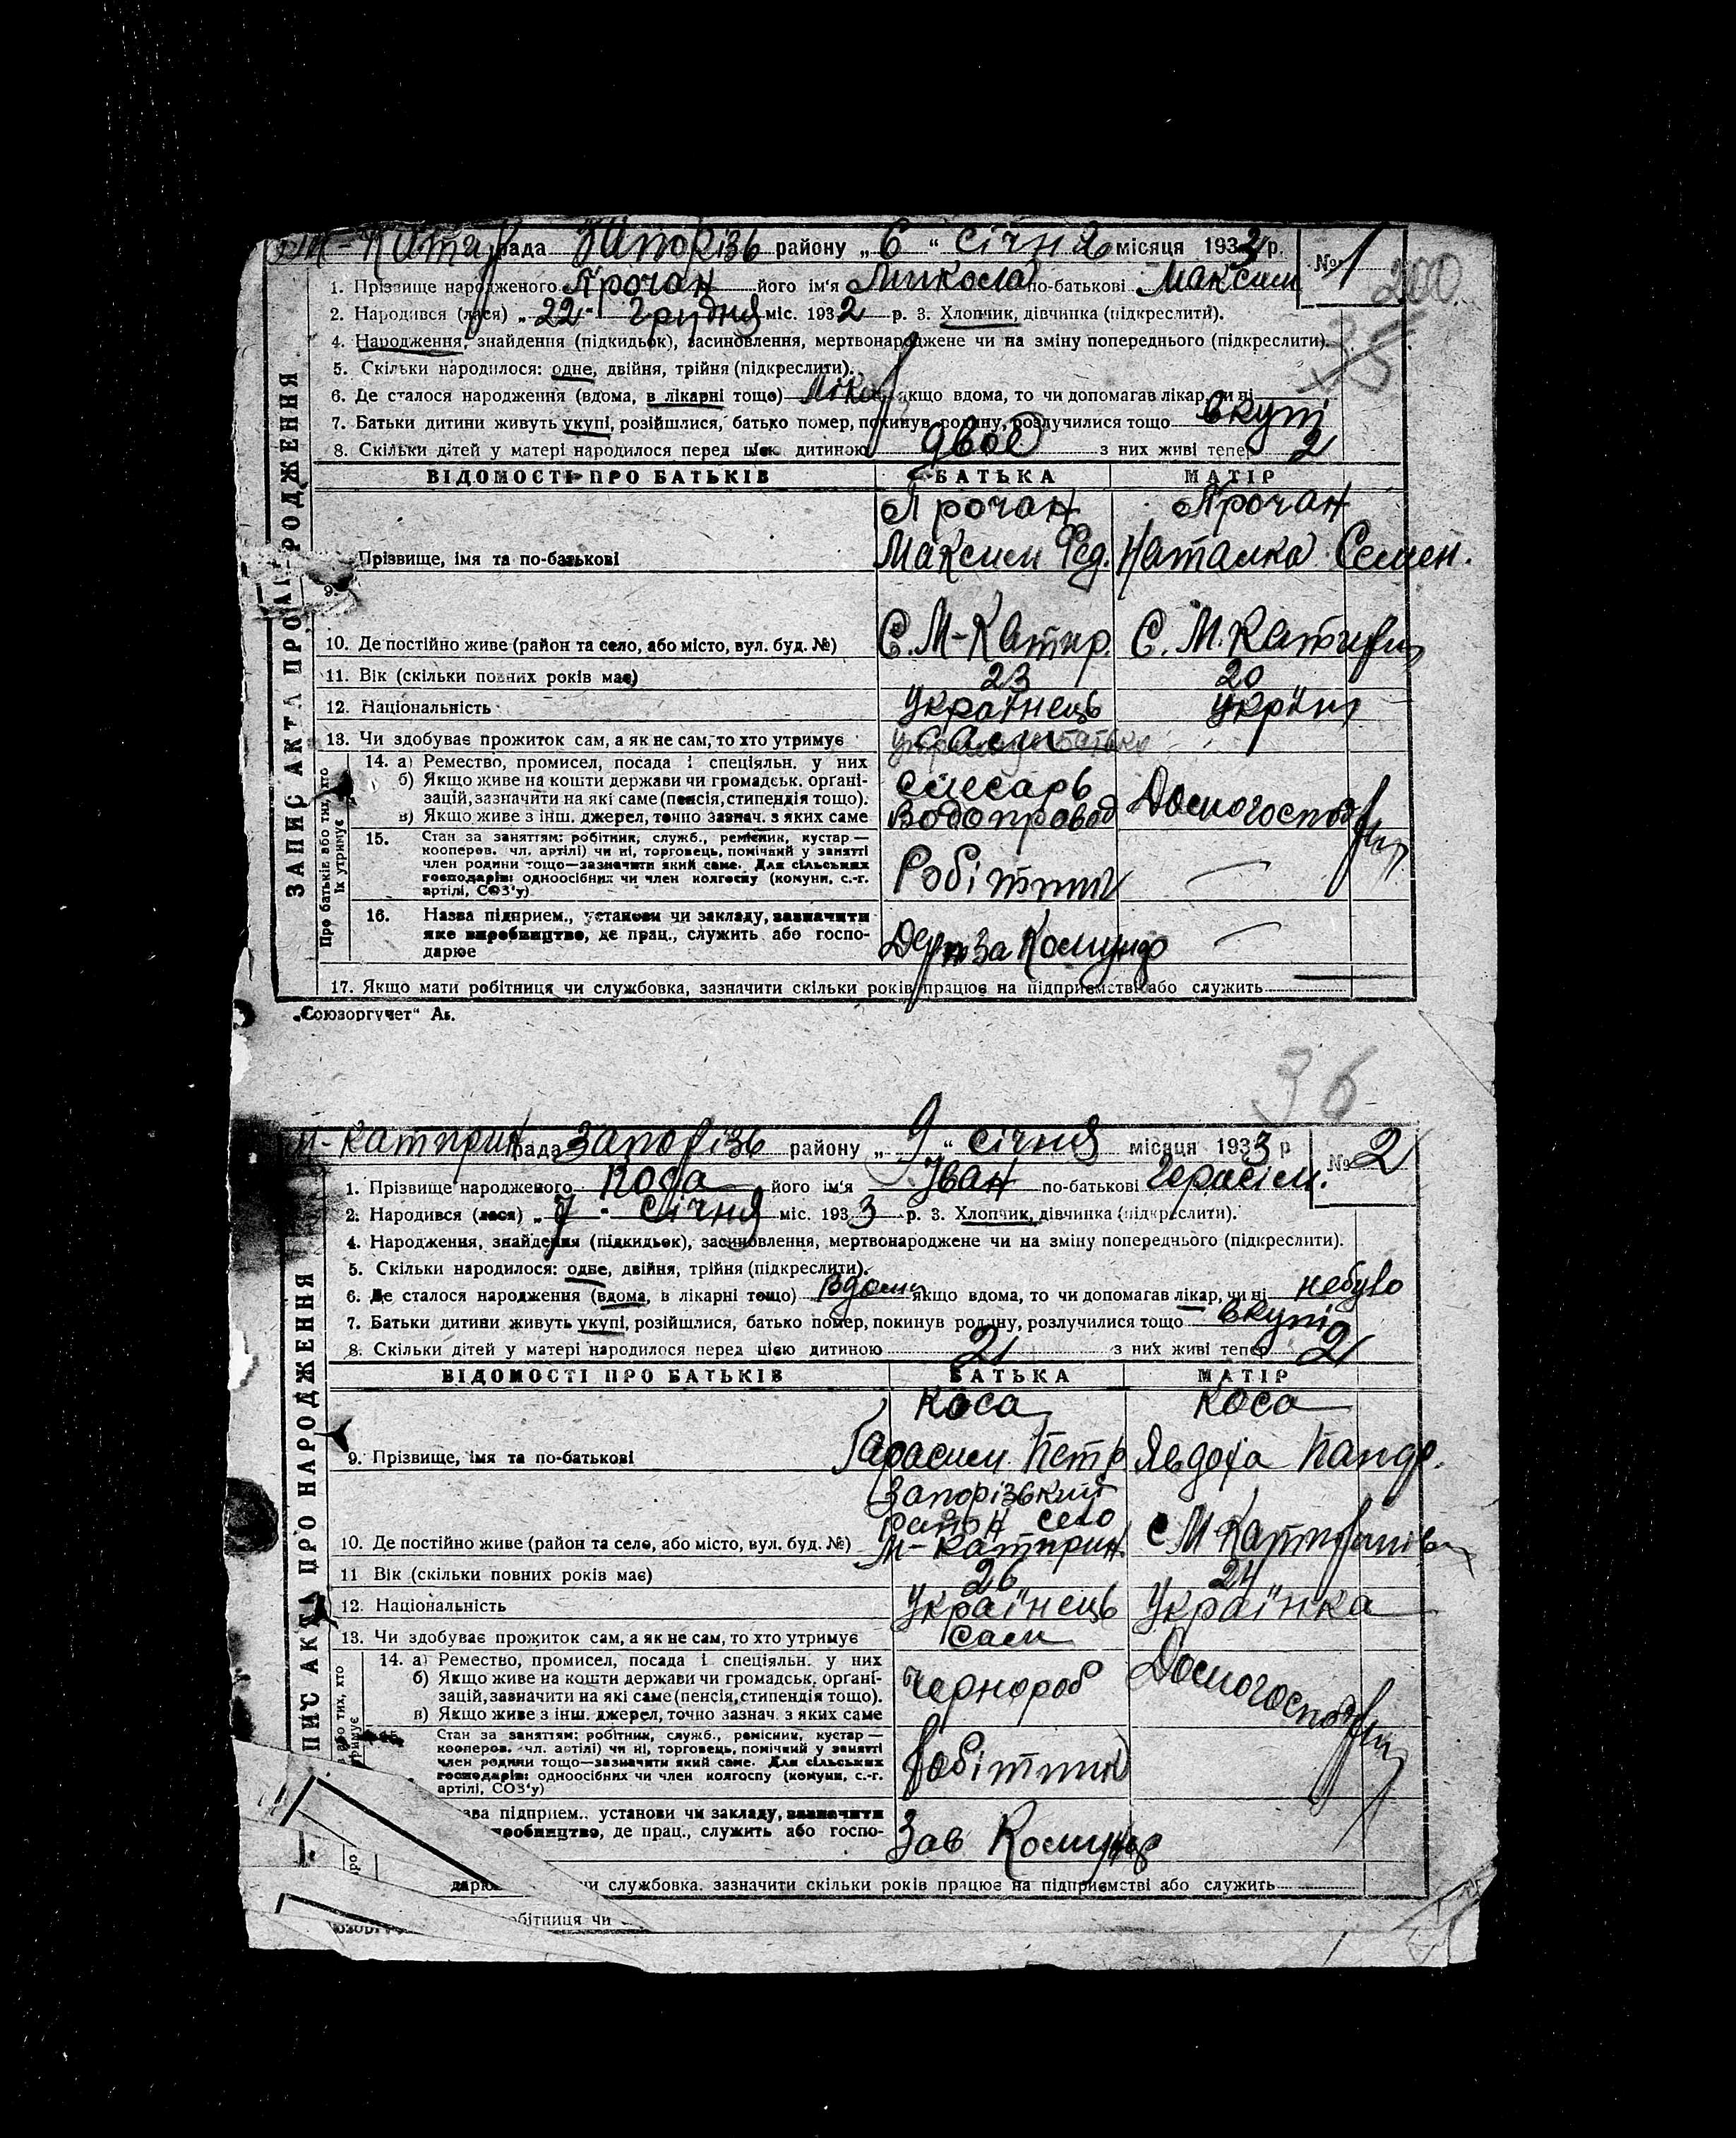 М-Катер рада Запорізь району „6“ січня місяця 1933 р. № 1
200
1. Прізвище народженого Прочан його ім'я Микола по-батькові Максим
2. Народився (лася) „22“ Грудня міс. 1932 р. 3. Хлопчик, дівчинка (підкреслити).
35
4. Народження, знайдення (підкидьок), засиновлення, мертвонароджене чи на зміну попереднього (підкреслити).
5. Скільки народилося: одне, двійня, трійня (підкреслити).
6. Де сталося народження (вдома, в лікарні тощо) якщо вдома, то чи допомагав лікар, чи ні
7. Батьки дитини живуть укупі, розійшлися, батько помер, покинув родину, розлучилися тощо вкупі
8. Скільки дітей у матері народилося перед цією дитиною двоє з них живі тепер 2
ЗАПИС АКТА ПРО НАРОДЖЕННЯ
ВІДОМОСТІ ПРО БАТЬКІВ БАТЬКА МАТІР
Прочан Прочан
9. Прізвище, імя та по-батькові Максим Фед. Наталка Семен.
10. Де постійно живе (район та село, або місто, вул. буд. №) С. М-Катир. С. М. Катирин
11. Вік (скільки повних років має) 23 20
12. Національність українець україн
13. Чи здобуває прожиток сам, а як не сам, то хто утримує сам
Про батьків або тих, хто їх утримує
14. а) Ремество, промисел, посада і спеціяльн. у них
б) Якщо живе на кошти держави чи громадськ. орґані-
зацій, зазначити на які саме (пенсія, стипендія тощо).
в) Якщо живе з інш. джерел, точно зазнач. з яких саме
слесарь
водопровод Домогосподрин
15. Стан за заняттям: робітник, служб., ремісник, кустар —
кооперов. чл. артілі) чи ні, торговець, помічний у занятті
член родини тощо—зазначити який саме. Для сільських
господарів: одноосібних чи член колгоспу (комуни, с.-г.
артілі, СОЗ'у)
Робітник —
16. Назва підприєм., установи чи закладу, зазначити
яке виробництво, де прац., служить або госпо-
дарює
Держ За Комунар —
17. Якщо мати робітниця чи службовка, зазначити скільки років працює на підприємстві або служить
„Союзоргучет“ Ав.
36
М-Катирин рада Запорізь району „9“ січня місяця 1933 р № 2
1. Прізвище народженого Коса його ім'я Іван по-батькові Герасім.
2. Народився (лася) „7“ Січня міс. 1933 р. 3. Хлопчик, дівчинка (підкреслити).
4. Народження, знайдення (підкидьок), засиновлення, мертвонароджене чи на зміну попереднього (підкреслити).
5. Скільки народилося: одне, двійня, трійня (підкреслити).
6. Де сталося народження (вдома, в лікарні тощо) Вдома якщо вдома, то чи допомагав лікар, чи ні небуло
7. Батьки дитини живуть укупі, розійшлися, батько помер, покинув родину, розлучилися тощо вкупі
8. Скільки дітей у матері народилося перед цією дитиною 2 з них живі тепер 2
ПИС АКТА ПРО НАРОДЖЕННЯ
ВІДОМОСТІ ПРО БАТЬКІВ БАТЬКА МАТІР
Коса Коса
9. Прізвище, імя та по-батькові Гарасим Петр Явдоха Пандр.
Запорізький
район село
10. Де постійно живе (район та село, або місто, вул. буд. №) М-Катирин с М Катиринівки
11 Вік (скільки повних років має) 26 24
12. Національність Українець Українка
13. Чи здобуває прожиток сам, а як не сам, то хто утримує сам
14. а) Ремество, промисел, посада і спеціяльн. у них
б) Якщо живе на кошти держави чи громадськ. орґані-
зацій, зазначити на які саме (пенсія, стипендія тощо).
в) Якщо живе з інш. джерел, точно зазнач. з яких саме
Чернороб Домогосподрин
Стан за заняттям: робітник, служб., ремісник, кустар —
кооперов. чл. артілі) чи ні, торговець, помічний у занятті
член родини тощо—зазначити який саме. Для сільських
господарів: одноосібних чи член колгоспу (комуни, с.-г.
артілі, СОЗ'у)
робітник
зва підприєм., установи чи закладу, зазначити
робництво, де прац., служить або госпо-
Зав Комунар
дарю чи службовка, зазначити скільки років працює на підприємстві або служить
обітниця чи